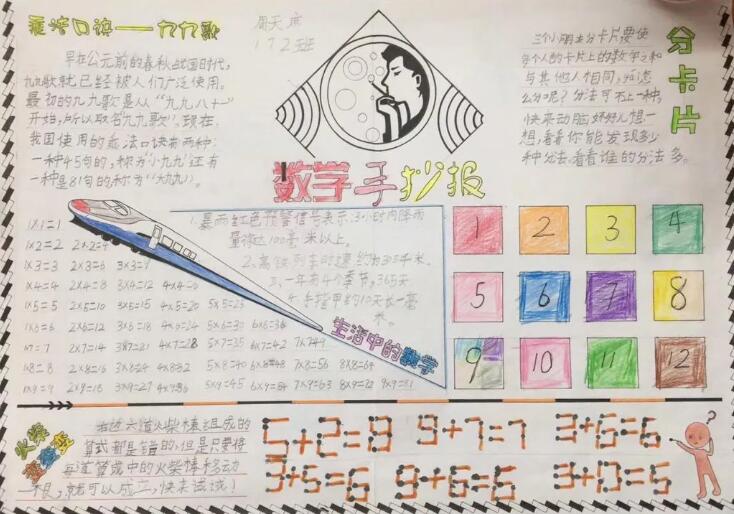 乘法口诀——九九歌
早在公元前的春秋战国时代,
九九歌就已经被人们广泛使用。
最初的九九歌是从“九九八十一”
开始,所以取名“九九歌”。现在,
我国使用的乘法口诀有两种:
一种45句的,称为“小九九”还有
一种是81句的称为“大九九”。
周天
172班
数学手抄报
分卡片
三个小朋友分卡片要使
每个人的卡片上的数字之和
与其他人相同,
么分呢?分法可不止一种,
快来动脑好好儿想一
想,看看你能发现多少
种分法,看看谁的分法多。
1.暴雨红色预警信号表示:3小时内降雨
量将达100毫米以上。
2.高铁列车时速约为305千米。
3.一年有4个季节,365天
4.手指甲约10天长一毫
米
生活中的数学
1 2 3 4
5 6 7 8
9 10 11 12
1×1=1
1×2=2 2×2=4
1×3=3 2×3=6 3×3=9
1×4=4 2×4=8 3×4=12 4×4=
1×5=5 2×5=10 3×5=15 4×5=20 5×5=25
1×6=6 2×6=12 3×6=18 4×6=24 5×6=30 6×6=36
1×7=7 2×7=14 3×7=21 4×7=28 5×7=35 6×7=42 7×7=49
1×8=8 2×8=16 3×8=24 4×8=32 5×8=40 6×8=48 7×8=56 8×8=64
1×9=9 2×9=18 3×9=27 4×9=36 5×9=45 6×9=54 7×9=63 8×9=72 9×9=81
火柴
右边六道火柴棒组成的
算式都是错的,但是只要将
每道算式中的火柴棒移动
一根,就可以成立,快来试试!
5+2=8 9+7=7 3+6=6
3+5=6 9+6=6 3+0=5
?